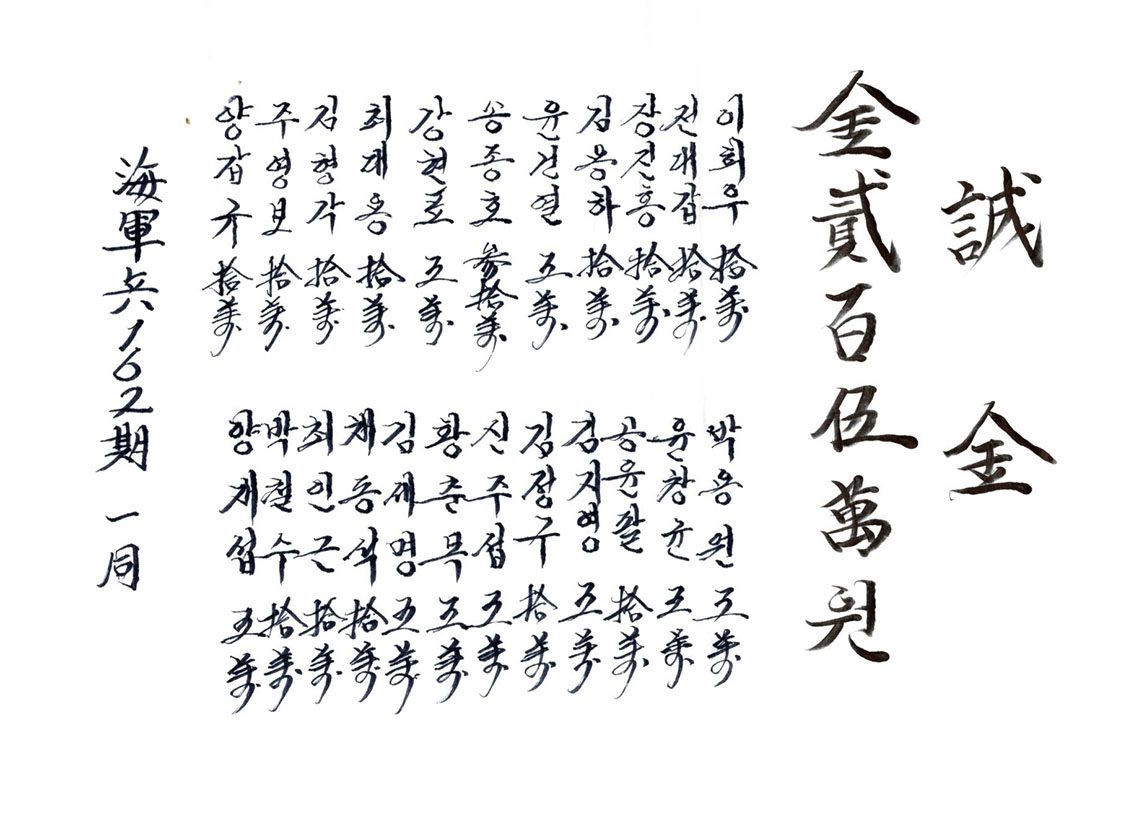 誠金
金貳百伍萬원
이희우 拾萬
전대갑 拾萬
장진홍 拾萬
김용하 拾萬
윤건열 五萬
송종호 參拾萬
강현로 五萬
최재용 拾萬
김형각 拾萬
주영보 拾萬
양갑규 拾萬
박용원 五萬
윤창균 五萬
공윤팔 拾萬
김지영 五萬
김정구 拾萬
신주섭 五萬
황춘목 五萬
김세명 五萬
채동식 拾萬
최인근 拾萬
박철수 拾萬
양재섭 五萬
海軍兵162期 一同